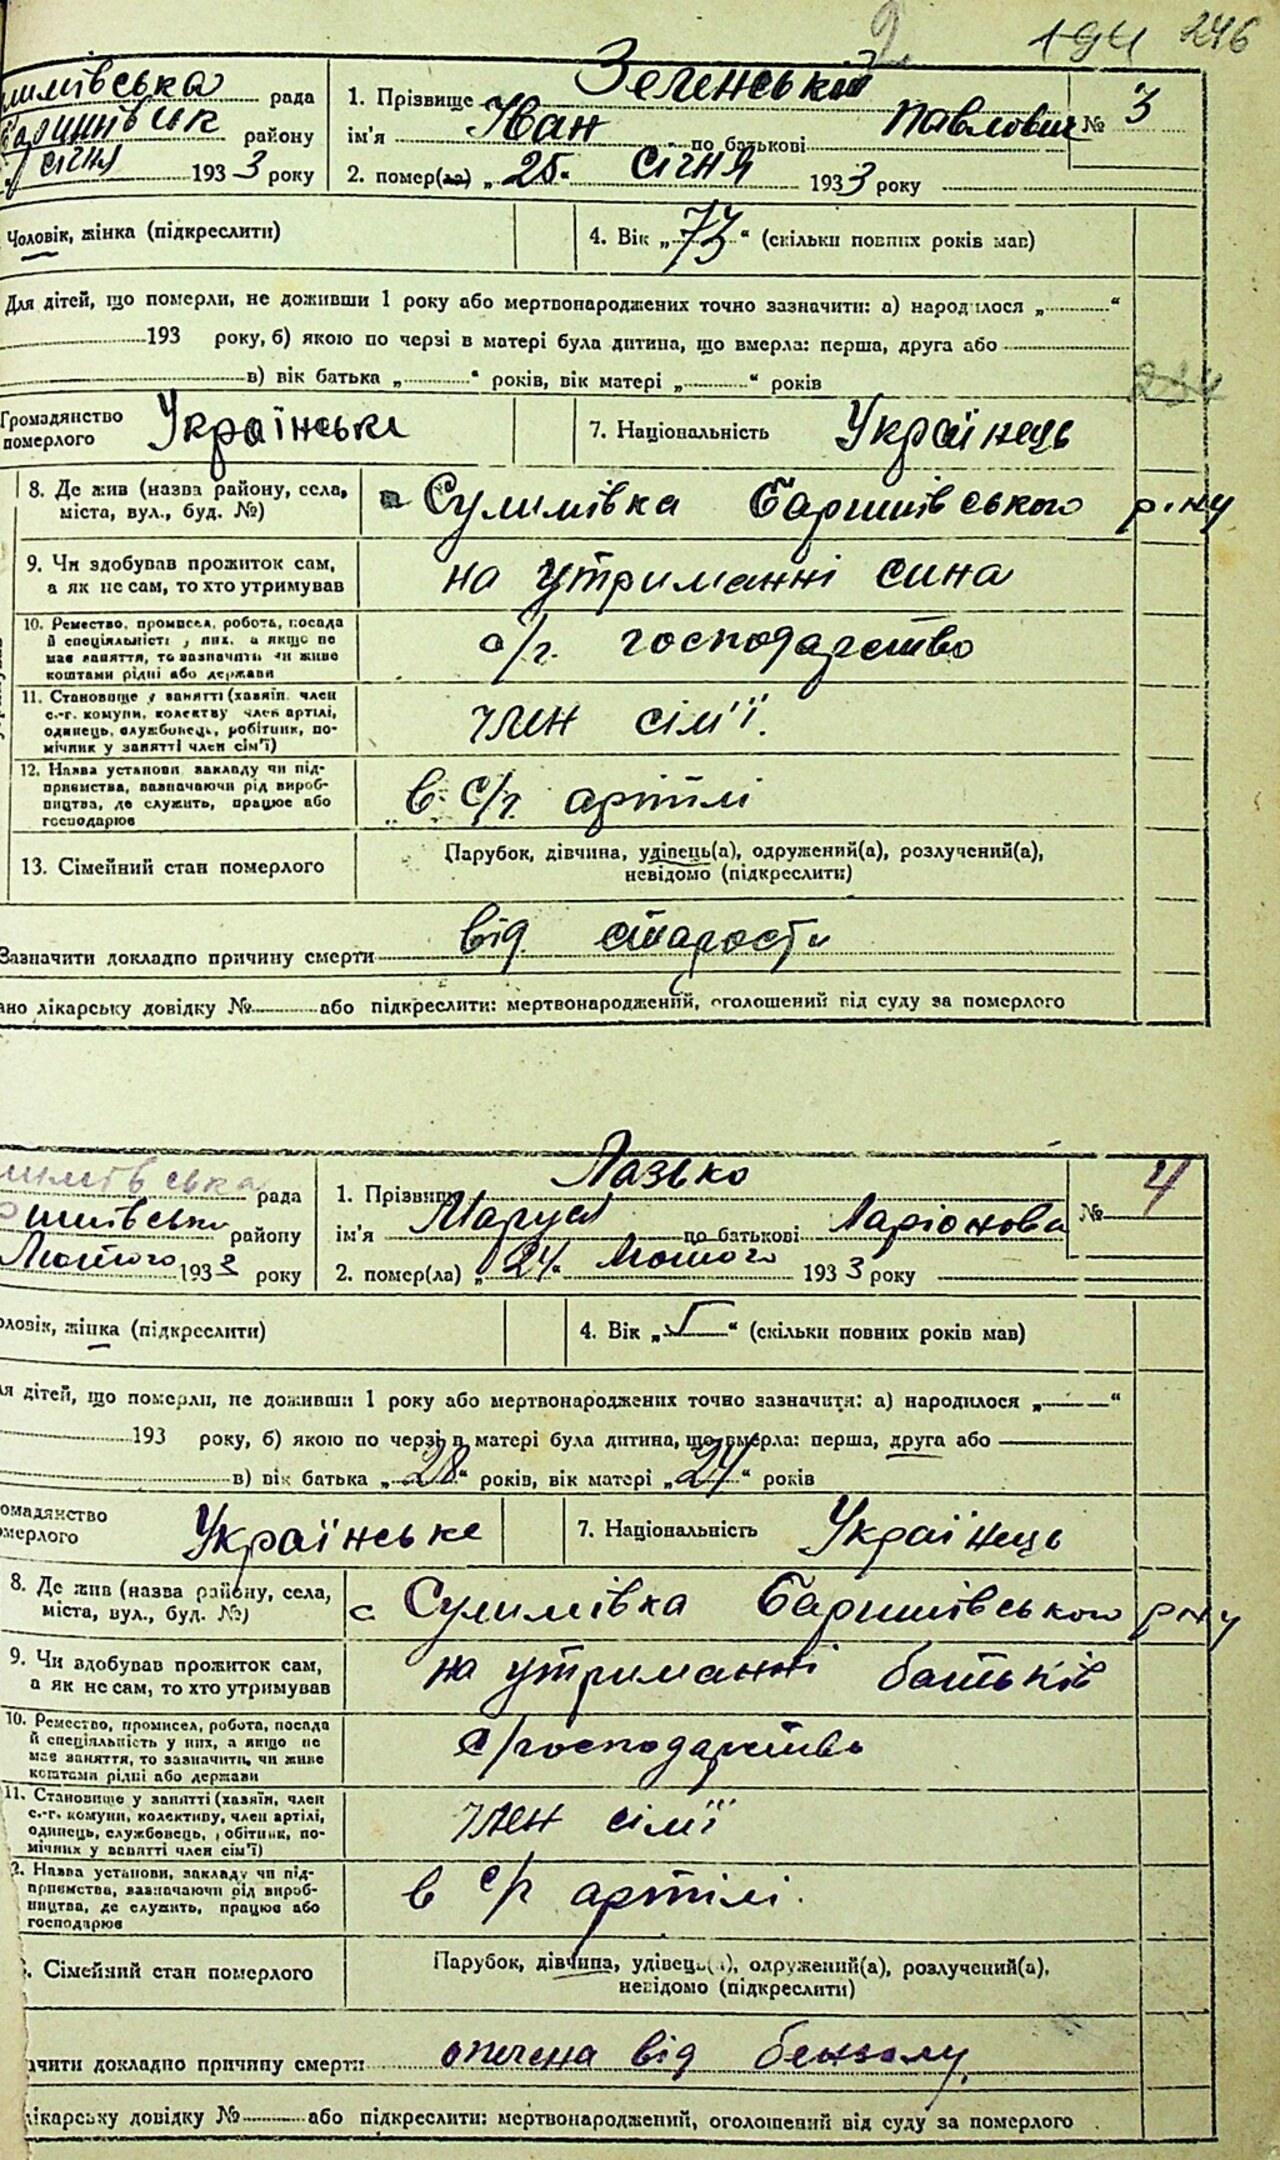 2 194 246
лимівська рада
Баришівськ району
січня 1933 року
1. Прізвище Зеленський
ім'я Іван по батькові Павлович № 3
2. помер(ла) „25“ січня 1933 року
Чоловік, жінка (підкреслити)
4. Вік „73“ (скільки повних років мав)
Для дітей, що померли, не доживши 1 року або мертвонароджених точно зазначити: а) народилося „ “
193 року, б) якою по черзі в матері була дитина, що вмерла: перша, друга або
в) вік батька „ “ років, вік матері „ “ років
234
Громадянство
померлого Українське
7. Національність Українець
8. Де жив (назва району, села,
міста, вул., буд. №)
Сулимівка Баришівського р-ну
9. Чи здобував прожиток сам,
а як не сам, то хто утримував
на утриманні сина
10. Ремество, промисел, робота, посада
й спеціальність у них, а якщо не
має заняття, то зазначить чи живе
коштами рідні або держави
с/г. господарство
11. Становище у занятті (хазяїн, член
с.-г. комуни, колективу член артілі,
одинець, службовець, робітник, по-
мічник у занятті член сім'ї)
член сім'ї.
12. Назва установи, закладу чи під-
приємства, зазначаючи рід вироб-
ництва, де служить, працює або
господарює
в с/г. артілі
13. Сімейний стан померлого
Парубок, дівчина, удівець(а), одружений(а), розлучений(а),
невідомо (підкреслити)
Зазначити докладно причину смерти від старости
ано лікарську довідку № або підкреслити: мертвонароджений, оголошений від суду за померлого
лимівська рада
ишівсько району
Лютого 1933 року
1. Прізвище Лазько
ім'я Маруся по батькові Ларіонова № 4
2. помер(ла) „24“ Лютого 1933 року
оловік, жінка (підкреслити)
4. Вік „5“ (скільки повних років мав)
ля дітей, що померли, не доживши 1 року або мертвонароджених точно зазначити: а) народилося „ “
193 року, б) якою по черзі в матері була дитина, що вмерла: перша, друга або
в) вік батька „28“ років, вік матері „24“ років
омадянство
омерлого Українське
7. Національність Українець
8. Де жив (назва району, села,
міста, вул., буд. №)
с Сулимівка Баришівського р-ну
9. Чи здобував прожиток сам,
а як не сам, то хто утримував
на утриманні батьків
10. Ремество, промисел, робота, посада
й спеціальність у них, а якщо не
має заняття, то зазначити, чи живе
коштами рідні або держави
с/господарство
11. Становище у занятті (хазяїн, член
с.-г. комуни, колективу, член артілі,
одинець, службовець, робітник, по-
мічник у занятті член сім'ї)
член сім'ї
2. Назва установи, закладу чи під-
приємства, зазначаючи рід вироб-
ництва, де служить, працює або
господарює
в с/г артілі.
. Сімейний стан померлого
Парубок, дівчина, удівець(а), одружений(а), розлучений(а),
невідомо (підкреслити)
ачити докладно причину смерти опечена від бензолу
лікарську довідку № або підкреслити: мертвонароджений, оголошений від суду за померлого